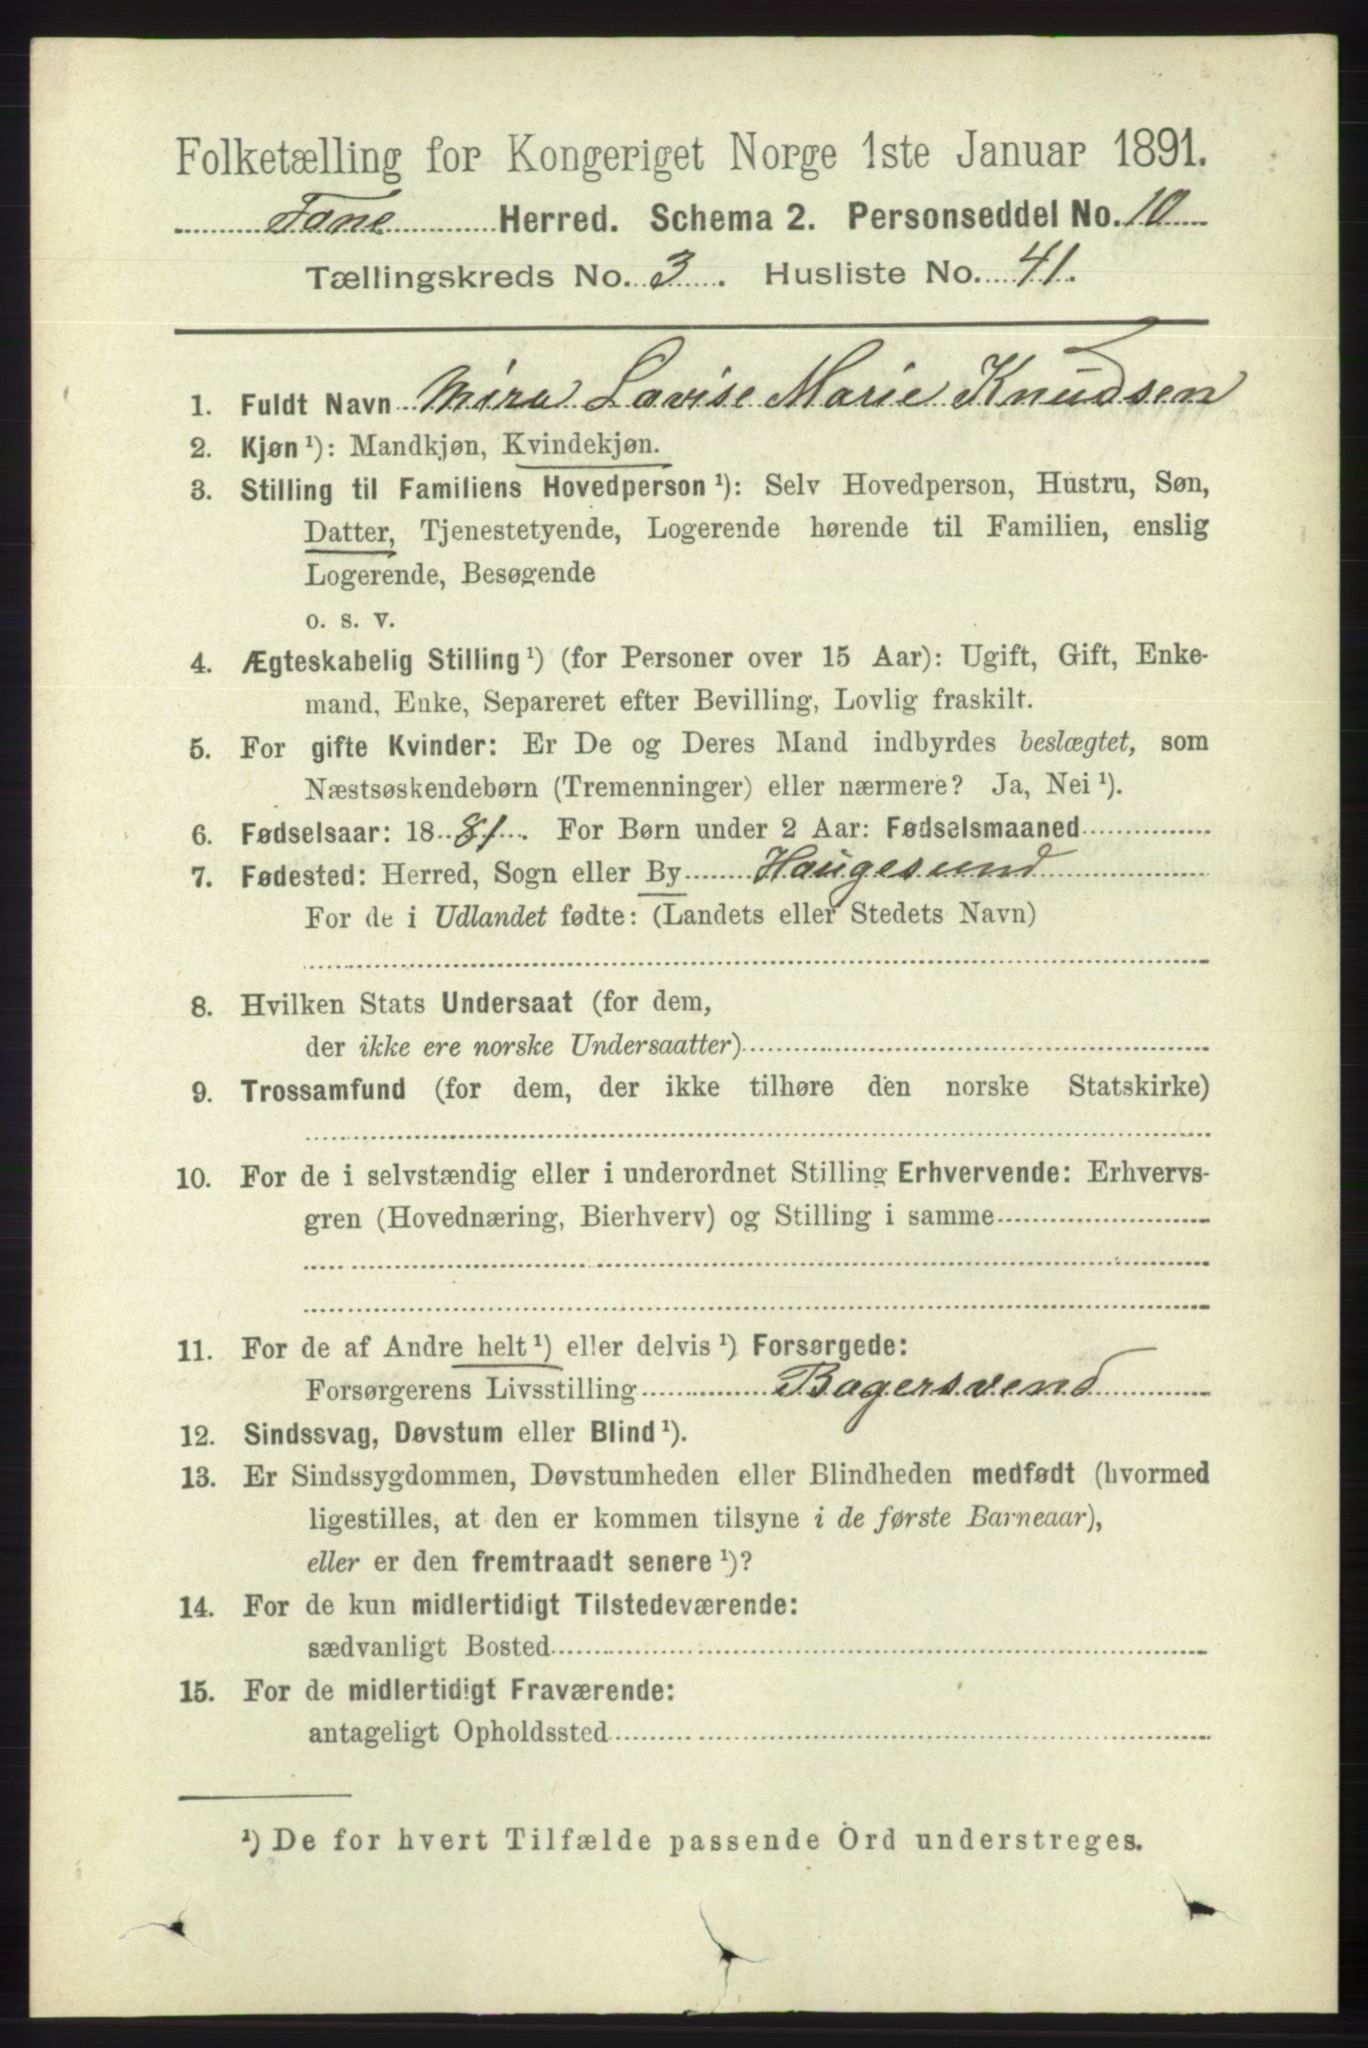 Folketælling for Kongeriget Norge 1ste Januar 1891.
Fane Herred. Schema 2. Personseddel No. 10
Tællingskreds No. 3. Husliste No. 41.
1. Fuldt Navn Mira Lovise Marie Knudsen
2. Kjøn ¹): Mandkjøn, Kvindekjøn.
3. Stilling til Familiens Hovedperson ¹): Selv Hovedperson, Hustru, Søn,
Datter, Tjenestetyende, Logerende hørende til Familien, enslig
Logerende, Besøgende
o. s. v.
4. Ægteskabelig Stilling ¹) (for Personer over 15 Aar): Ugift, Gift, Enke-
mand, Enke, Separeret efter Bevilling, Lovlig fraskilt.
5. For gifte Kvinder: Er De og Deres Mand indbyrdes beslægtet, som
Næstsøskendebørn (Tremenninger) eller nærmere? Ja, Nei ¹).
6. Fødselsaar: 1881. For Børn under 2 Aar: Fødselsmaaned
7. Fødested: Herred, Sogn eller By Haugesund
For de i Udlandet fødte: (Landets eller Stedets Navn)
8. Hvilken Stats Undersaat (for dem,
der ikke ere norske Undersaatter)
9. Trossamfund (for dem, der ikke tilhøre den norske Statskirke)
10. For de i selvstændig eller i underordnet Stilling Erhvervende: Erhvervs-
gren (Hovednæring, Bierhverv) og Stilling i samme
11. For de af Andre helt ¹) eller delvis ¹) Forsørgede:
Forsørgerens Livsstilling Bagersvend
12. Sindssvag, Døvstum eller Blind ¹).
13. Er Sindssygdommen, Døvstumheden eller Blindheden medfødt (hvormed
ligestilles, at den er kommen tilsyne i de første Barneaar),
eller er den fremtraadt senere ¹)?
14. For de kun midlertidigt Tilstedeværende:
sædvanligt Bosted
15. For de midlertidigt Fraværende:
antageligt Opholdssted
¹) De for hvert Tilfælde passende Ord understreges.